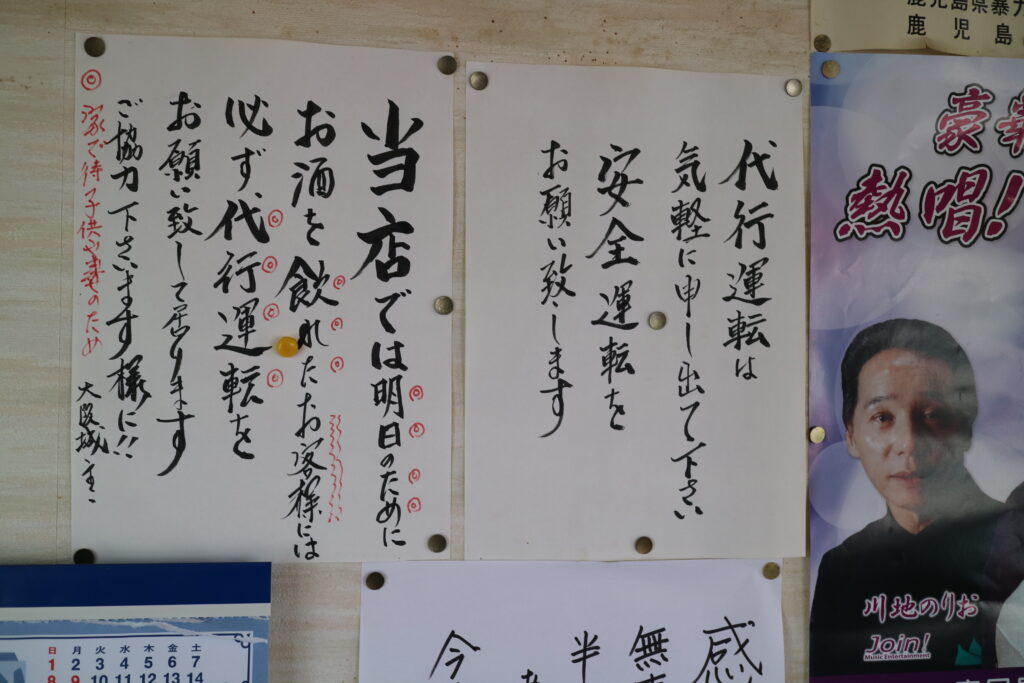 当店では明日のために
お酒を飲れたお客様には
必ず、代行運転を
お願い致して居ります
ご協力下さいます様に!!
大阪城主
◎家で待子供や妻のため
代行運転は
気軽に申し出て下さい
安全運転を
お願い致します
鹿児島県暴力
鹿児島
熱唱!
川地のりお
Join!
Music Entertainment
感
無
半
今
日 月 火 水 木 金 土
1 2 3 4 5 6 7
8 9 10 11 12 13 14